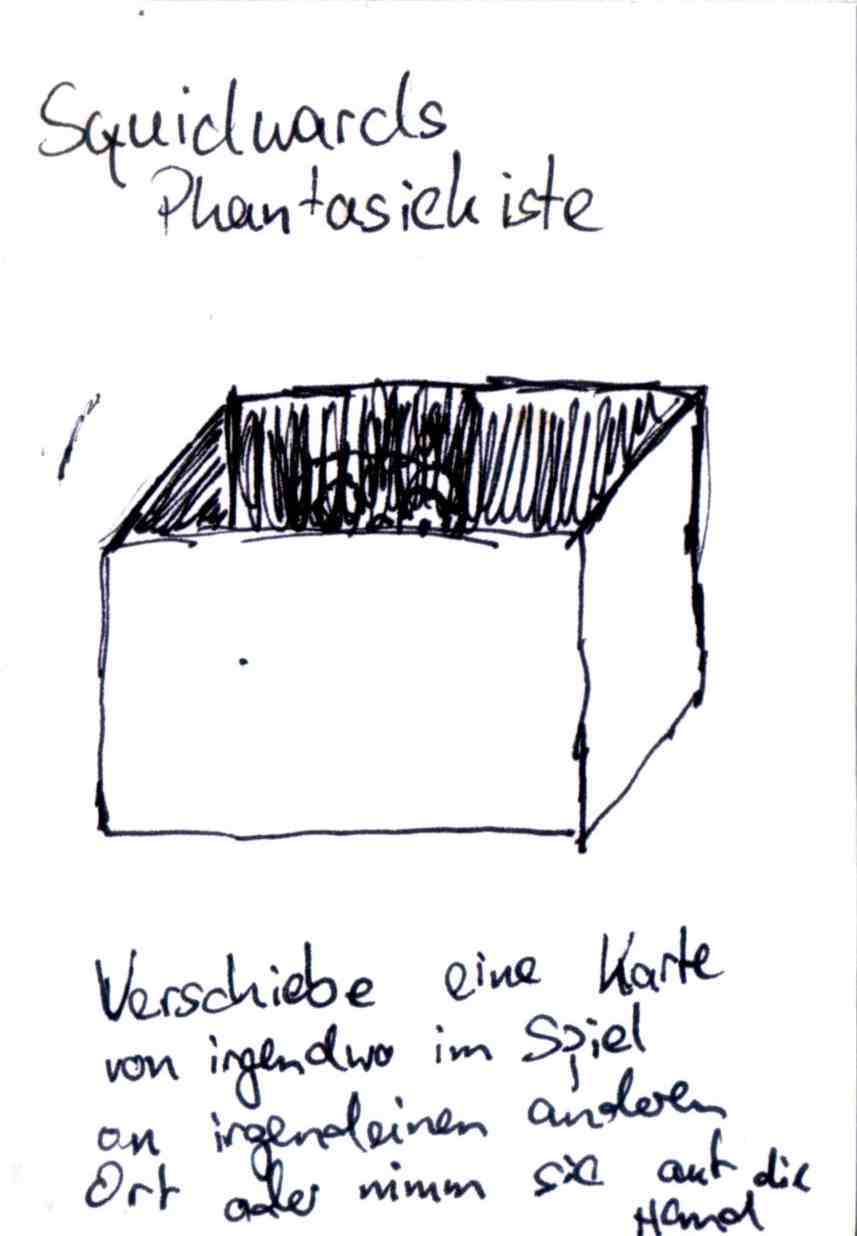 Squidwards
Phantasiekiste
Verschiebe eine Karte
von irgendwo im Spiel
an irgendeinen anderen
Ort oder nimm sie auf die
Hand